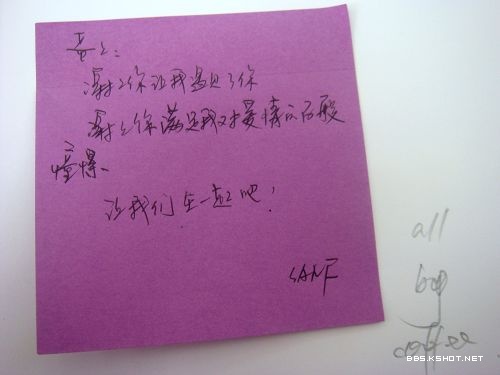 谢谢你让我遇见了你
谢谢你满足我对爱情的所有
憧憬、
让我们在一起吧！
SANF
all
big
coffee
BBS.KSHOT.NET